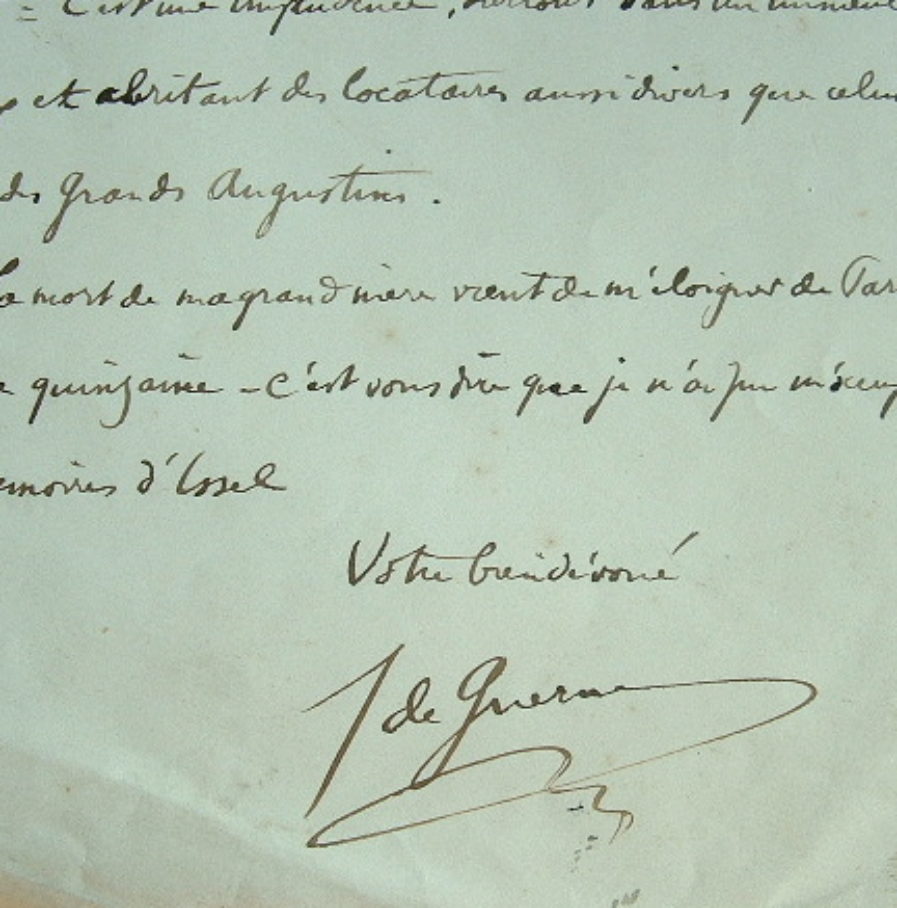 = C'est une imprudence, surtout dans un immeub
et abritant des locataires aussi divers que celui
des Grands Augustins.
La mort de ma grand mère vient de m'éloigner de Par
quinzaine - c'est vous dire que je n'ai pu m'occup
émoires d'Issel
Votre bien dévoué
J de Guerne